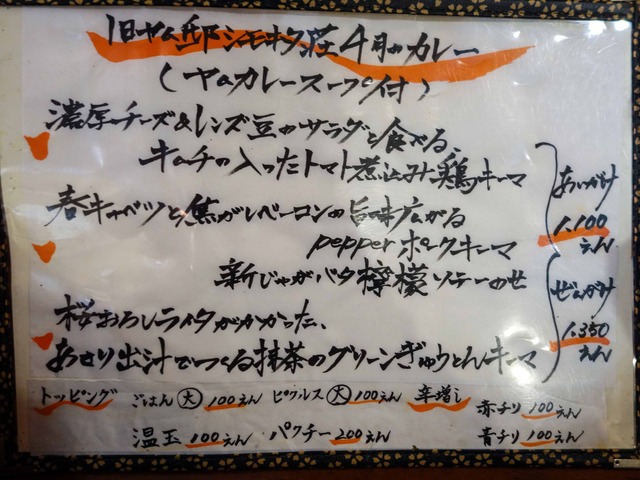 旧ヤム邸シモキタ荘4月のカレー
(ヤムカレースープ付)
濃厚チーズ&レンズ豆のサラダと食べる、
キムチの入ったトマト煮込み鶏キーマ
春キャベツと焦がしベーコンの旨味広がる
pepperポークキーマ
新じゃがバタ檸檬ソテーのせ
桜おろしライタがかかった、
あさり出汁でつくる抹茶のグリーンぎゅうとんキーマ
あいがけ
1.100
えん
ぜんがけ
1.350
えん
トッピング ごはん(大)100えん ピクルス(大)100えん 辛増し 赤チリ100えん
温玉100えん パクチー200えん 青チリ100えん